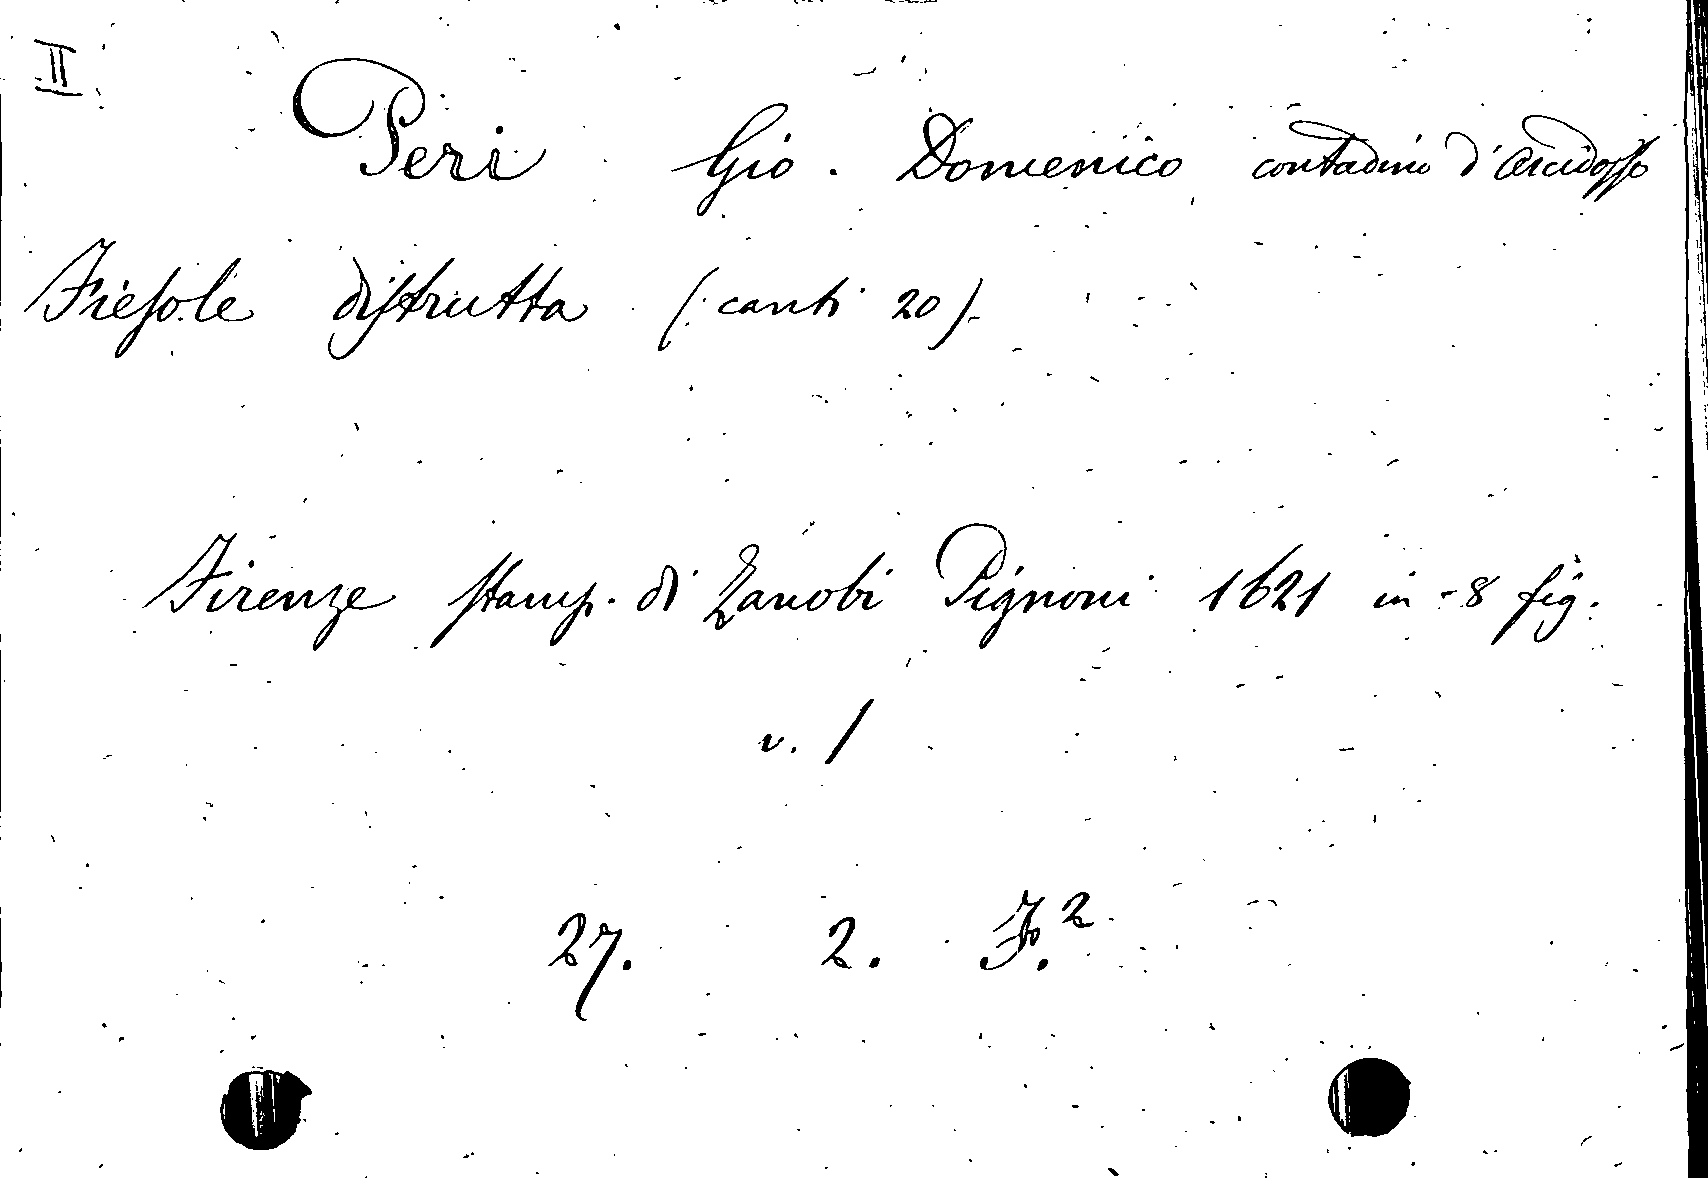 II
Peri Gio. Domenico contadino d'Arcidosso
Fiesole distrutta (: canti 20).
Firenze stamp. di Zanobi Pignoni 1621 in-8 fig.
v. 1
27. 2. F.²